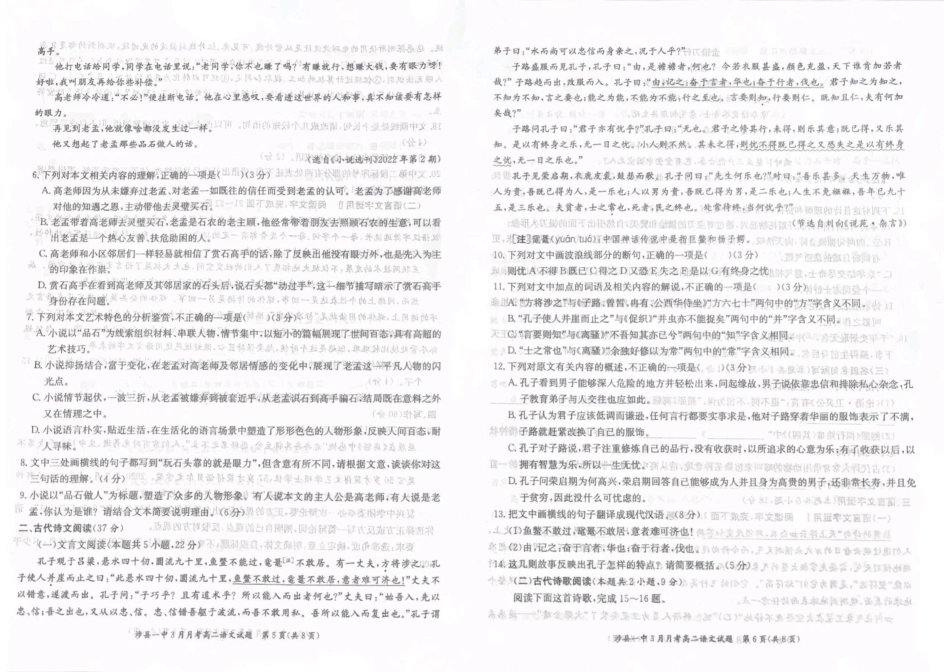 高子。
他打电话给同学,同学在电话里说,“老同学你不也赚了吗?有赚就行,想赚大钱,要有眼力呀!
好啦,我叫朋友再给你些补偿。”
高老师冷冷道:“不必!”便挂断电话。他在心里感叹,要看透这世界的人和事,真不知该要有怎样
的眼力。
再见到老孟,他就像啥都没发生过一样。
他又想起了老孟那些品石做人的话。
(选自《小说选刊》2022年第2期)
6.下列对本文相关内容的理解,正确的一项是( )(3分)
A.高老师因为从未嫌弃过老孟,对老孟一如既往的信任而受到老孟的认可。老孟为了感谢高老师
对他的知遇之恩,主动带他去灵璧买石。
B.老孟带着高老师去灵璧买石,老孟是石农的老主顾,他经常带着朋友去照顾石农的生意,可以看
出老孟是一个热心友善、扶危助困的人。
C.高老师和小区邻居们一样轻易就相信了赏石高手的话,除了反映出他没有眼力外,也是先入为主
的印象在作祟。
D.赏石高手在看到高老师及其邻居家的石头后,说石头都“动过手”,这一细节描写暗示了赏石高手
身份存在问题。
7.下列对本文艺术特色的分析鉴赏,不正确的一项是( )(3分)
A.小说以“品石”为线索组织材料、串联人物、情节集中,以短小的篇幅展现了世间百态,具有高超的
艺术技巧。
B.小说抑扬结合,富于变化,在老孟对高老师及邻居情感的变化中,展现了老孟这一平凡人物的闪
光点。
C.小说情节起伏,一波三折,从老孟被嫌弃到被套近乎,从老孟识石到高手骗石,结局既在意料之外
又在情理之中。
D.小说语言朴实,贴近生活,在生活化的语言场景中塑造了形形色色的人物形象,反映人间百态,耐
人寻味。
8.文中三处画横线的句子都写到“玩石头靠的就是眼力”,但含意有所不同,请根据文意,谈谈你对这
三句话的理解。(4分)
9.小说以“品石做人”为标题,塑造了众多的人物形象。有人说本文的主人公是高老师,有人说是老
孟,你认为是谁?请结合文本简要说明理由。(6分)
二、古代诗文阅读(37分)
(一)文言文阅读(本题共5小题,22分)
孔子观于吕梁,悬水四十仞,圜流九十里,鱼鳖不能过,鼋鼍[注]不敢居。有一丈夫,方将涉之。孔
子使人并崖而止之曰:“此悬水四十仞,圜流九十里,鱼鳖不敢过,鼋鼍不敢居,意者难可济也!”丈夫不
以错意,遂渡而出。孔子问:“子巧乎?且有道术乎?所以能入而出者何也?”丈夫曰:“始吾入,先以
忠、信;吾之出也,又从以忠、信。忠、信错吾躯于波流,而吾不敢用私。吾所以能入而复出也。”孔子谓
涉县一中3月月考高二语文试题 第5页(共8页)
弟子曰:“水而尚可以忠信而身亲之,况于人乎?”
子路盛服而见孔子,孔子曰:“由,是襜襜者,何也?今若衣服甚盛,颜色充盈,天下谁肯加若者
哉?”子路趋而出,改服而入。孔子曰:“由,记之:奋于言者,华也;奋于行者,伐也。君子知之为知之,
不知为不知,言之要也;能之为能,不能为不能,行之至也。言要则知,行要则仁。既知且仁,夫有何加
矣哉?”
子路问孔子曰:“君子亦有忧乎?”孔子曰:“无也。君子之修其行,未得,则乐其意;既已得,又乐其
知。是以有终身之乐,无一日之忧。小人则不然。其未之得,则忧不得既已得之又恐失之是以有终身
之忧,无一日之乐也。”
孔子见荣启期,衣鹿皮裘,鼓瑟而歌。孔子问曰:“先生何乐也?”对曰:“吾乐甚多。天生万物,唯
人为贵,吾既已得为人,是一乐也;人以男为贵,吾既已得为男,是二乐也;人生不免襁褓,吾年已九十
五,是三乐也。夫贫者,士之常也,死者,民之终也。处常待终,当何忧乎?”
(节选自刘向《说苑·杂言》)
[注]鼋鼍(yuán/tuó):中国神话传说中是指巨鳖和扬子鳄。
10.下列对文中画波浪线部分的断句,正确的一项是( )(3分)
则忧A不得B既已C得之D又恐E失之F是以G有终身之忧
11.下列对文中加点的词语及相关内容的解说,不正确的一项是( )(3分)
A.“方将涉之”与《子路、曾皙、冉有、公西华侍坐》“方六七十”两句中的“方”字含义不同。
B.“孔子使人并崖而止之”与《促织》“并虫亦不能捉矣”两句中的“并”字含义不同。
C.“言要则知”与《离骚》“不吾知其亦已兮”两句中的“知”字含义相同。
D.“士之常也”与《离骚》“余独好修以为常”两句中的“常”字含义相同。
12.下列对原文有关内容的概述,不正确的一项是( )(3分)
A.孔子看到男子能够深入危险的地方并轻松出来,问起缘故,男子说依靠忠信和排除私心杂念,孔
子教育弟子与人交往也应如此。
B.孔子认为君子应该低调而谦逊,任何言行都要实事求是,他对子路穿着华丽的服饰表示了不满,
子路就赶紧改换了自己的服饰。
C.孔子对子路说,君子注重修炼自己的品行,没有收获时,以所追求的心意为乐;有了收获以后,以
拥有智慧为乐,所以一生无忧。
D.孔子问荣启期为何高兴,荣启期回答自己能够成为人并且身为高贵的男子,还非常长寿,并且免
于贫穷,因此没什么可忧虑的。
13.把文中画横线的句子翻译成现代汉语。(8分)
(1)鱼鳖不敢过,鼋鼍不敢居,意者难可济也!
(2)由,记之:奋于言者,华也;奋于行者,伐也。
14.这几则故事反映出孔子怎样的特点?请简要概括。(5分)
(二)古代诗歌阅读(本题共2小题,9分)
阅读下面这首诗歌,完成15~16题。
涉县一中3月月考高二语文试题 第6页(共8页)